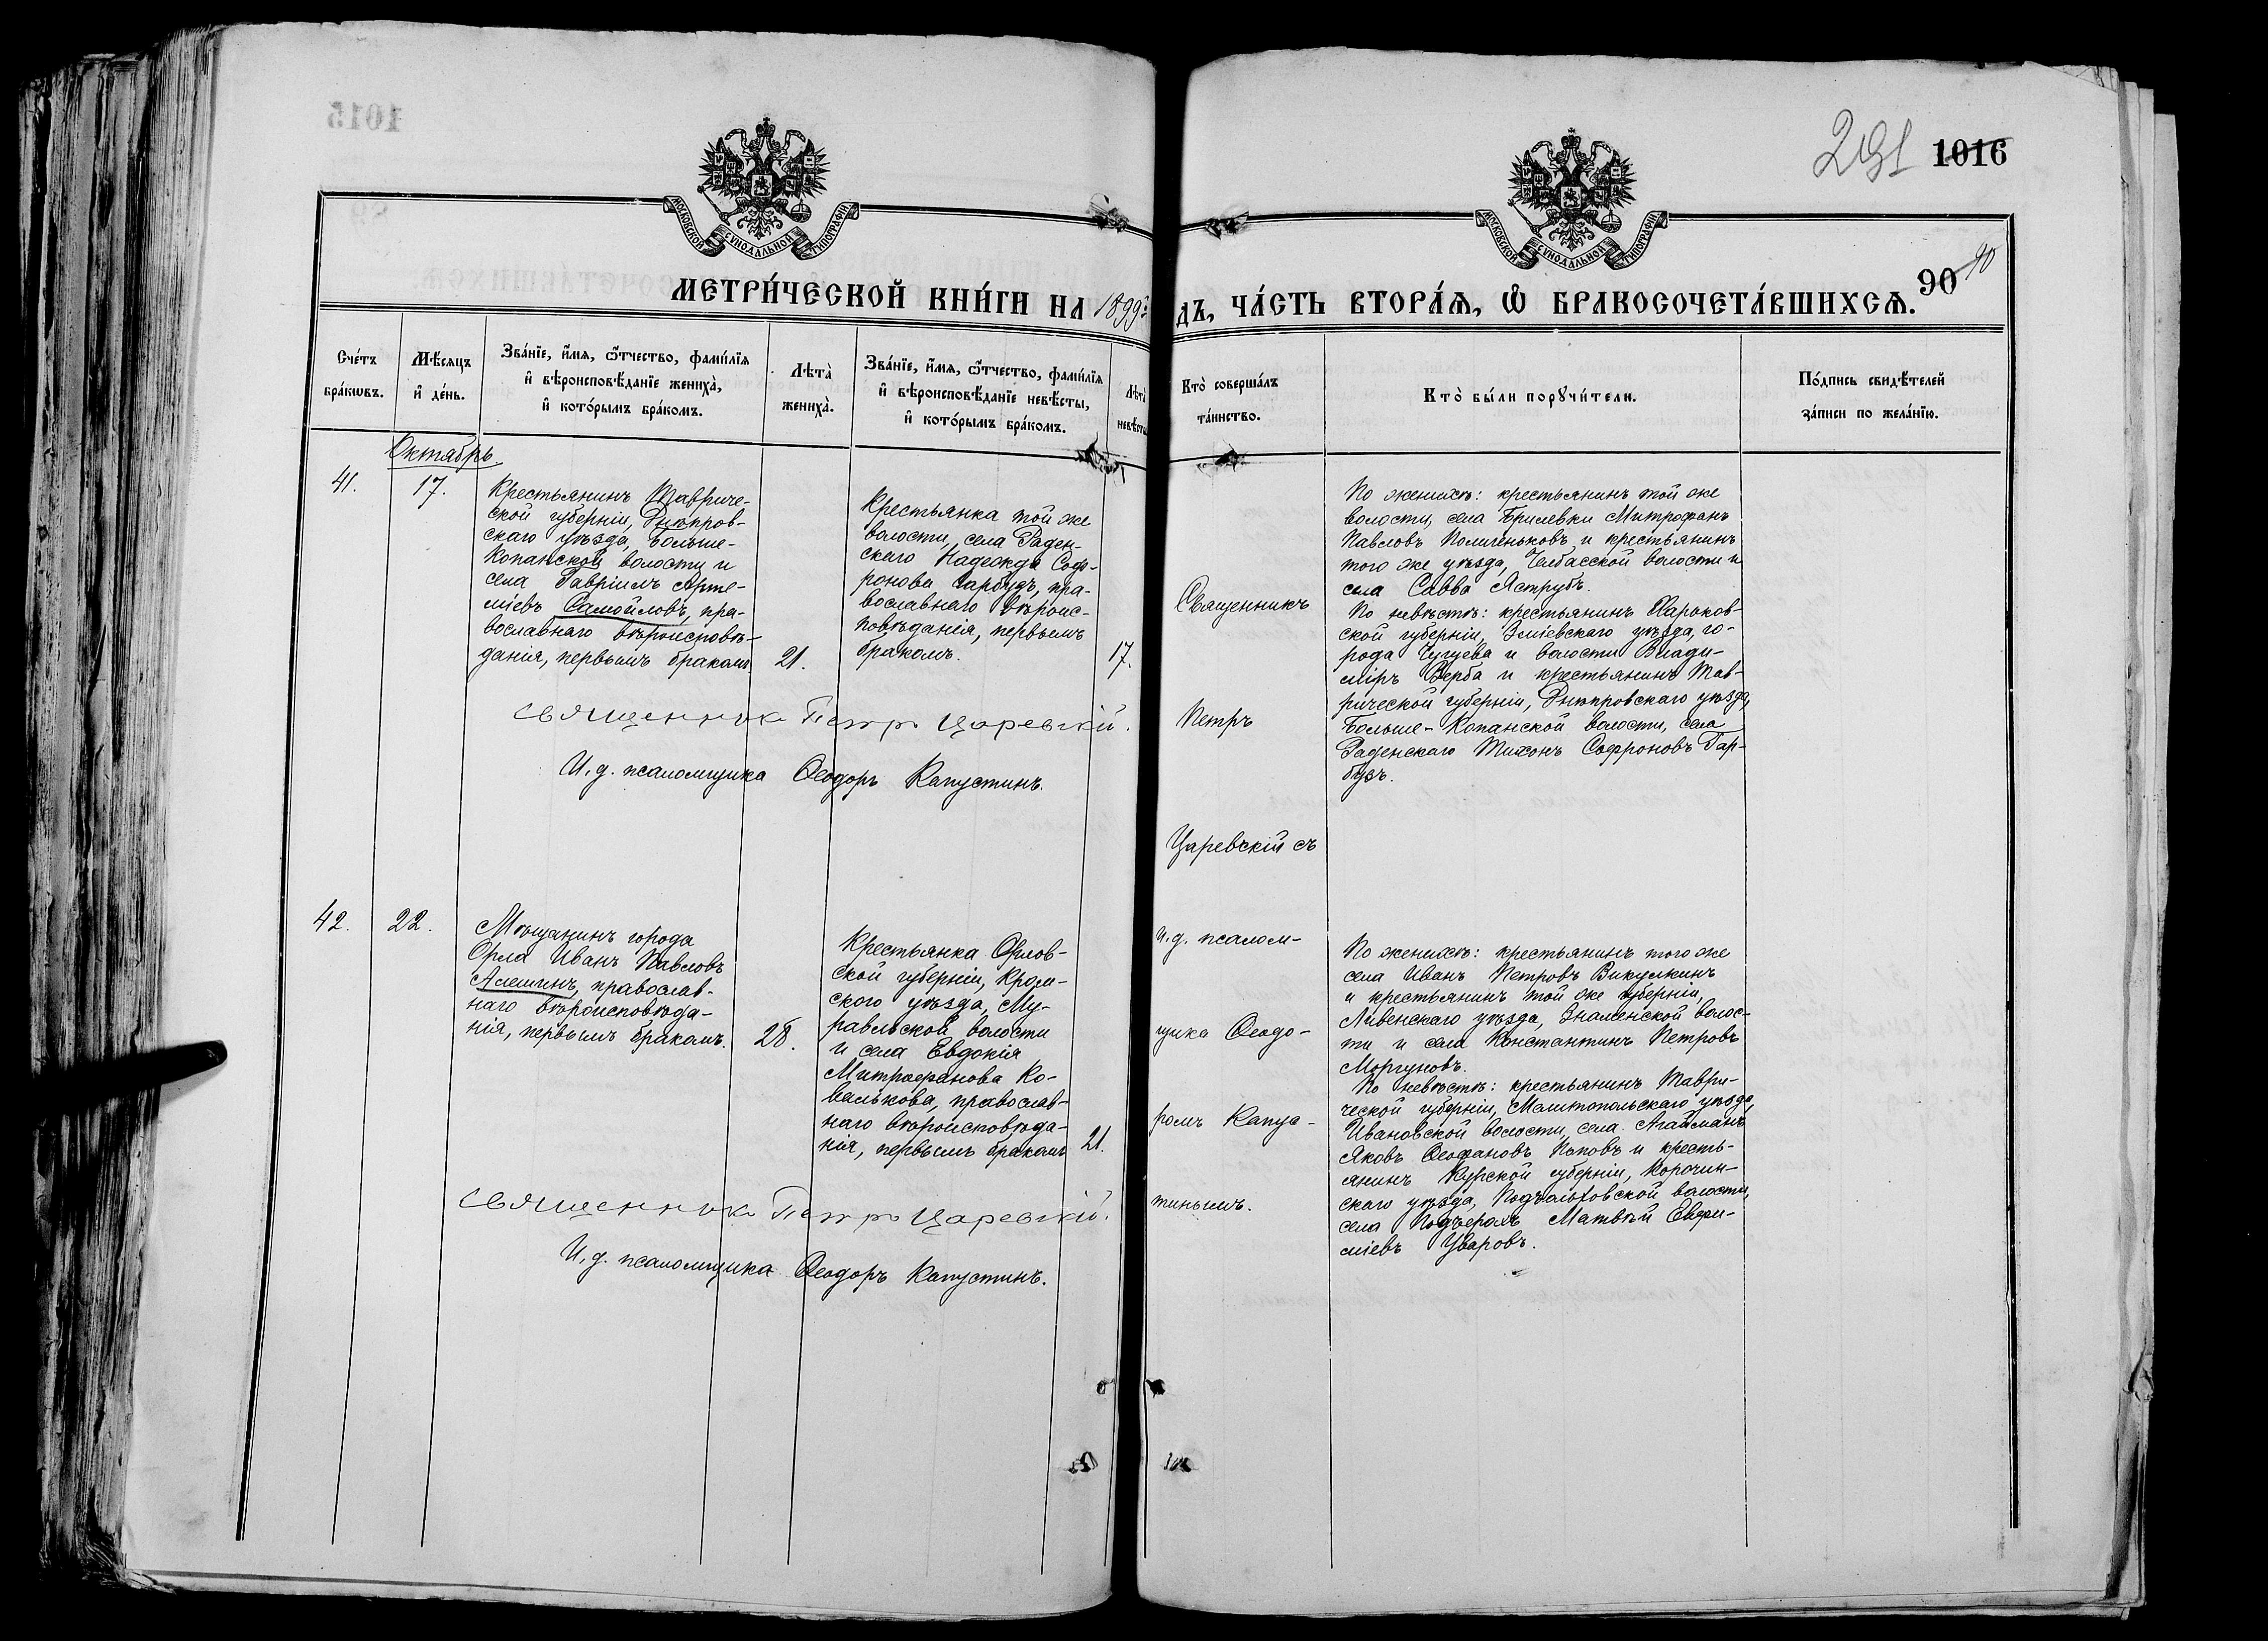 1015
291 1016
МОСКОВСКОЙ СѴНОДАЛЬНОЙ ТИПОГРАФІИ
МОСКОВСКОЙ СѴНОДАЛЬНОЙ ТИПОГРАФІИ
90 90
МЕТРИ́ЧЕСКОЙ КНИ́ГИ НА 1899 ДЪ, ЧА́СТЬ ВТОРА́Я, Ѽ БРАКОСОЧЕТА́ВШИХСѦ.
Сче́тъ
бра́кѡвъ.
Мѣ́сяцъ
и҆ де́нь.
Зва́нїе, и҆́мя, ѻ҆́тчество, фами́лїя
и҆ вѣроисповѣ́данїе жениха̀,
и҆ кото́рымъ бра́комъ.
Лѣта̀
жениха̀.
Зва́нїе, и҆́мя, ѻ҆́тчество, фами́лїя
и҆ вѣроисповѣ́данїе невѣ́сты,
и҆ кото́рымъ бра́комъ.
Лѣта̀
невѣ́сты
Кто̀ соверша́лъ
та́инство.
Кто̀ бы́ли порꙋчи́тели.
По́дпись свидѣ́телей
за́писи по жела́нїю.
Октябрь
41.
17.
Крестьянинъ Тавриче-
ской губерніи, Днѣпров-
скаго уѣзда, Больше-
Копанской волости и
села Гавріилъ Арте-
міевъ Самойловъ, пра-
вославнаго вѣроисповѣ-
данія, первымъ бракомъ.
21.
Крестьянка той же
волости, села Раден-
скаго Надежда Соф-
ронова Гарбузъ, пра-
вославнаго вѣроис-
повѣданія, первымъ
бракомъ.
17.
Священникъ Петръ Царевскій.
И. д. псаломщика Ѳеодоръ Капустинъ.
Священникъ
Петръ
Царевскій съ
и. д. псалом-
щика Ѳеодо-
ромъ Капус-
тинымъ.
По женихѣ: крестьянинъ той же
волости, села Брилевки Митрофанъ
Павловъ Полигеньковъ и крестьянинъ
того же уѣзда, Челбасской волости и
села Савва Яструбъ.
По невѣстѣ: крестьянинъ Харьков-
ской губерніи, Зміевскаго уѣзда, го-
рода Чугуева и волости Влади-
міръ Верба и крестьянинъ Тав-
рической губерніи, Днѣпровскаго уѣзда,
Больше-Копанской волости, села
Раденскаго Тихонъ Софроновъ Гар-
бузъ.
42.
22.
Мѣщанинъ города
Орла Иванъ Павловъ
Алешинъ, православ-
наго вѣроисповѣда-
нія, первымъ бракомъ.
28.
Крестьянка Орлов-
ской губерніи, Кром-
ского уѣзда, Му-
равльской волости
и села Евдокія
Митрофанова Ко-
валькова, православ-
наго вѣроисповѣда-
нія, первымъ бракомъ
21.
Священникъ Петръ Царевскій.
И. д. псаломщика Ѳеодоръ Капустинъ.
По женихѣ: крестьянинъ того же
села Иванъ Петровъ Викулкинъ
и крестьянинъ той же губерніи,
Ливенскаго уѣзда, Знаменской волос-
ти и села Константинъ Петровъ
Моргуновъ.
По невѣстѣ: крестьянинъ Таври-
ческой губерніи, Мелитопольскаго уѣзда,
Ивановской волости, села Агайманъ
Яковъ Ѳеофановъ Поповъ и кресть-
янинъ Курской губерніи, Корочан-
скаго уѣзда, Подъольховской волости,
села Матвѣй Евфи-
міевъ Уваровъ.